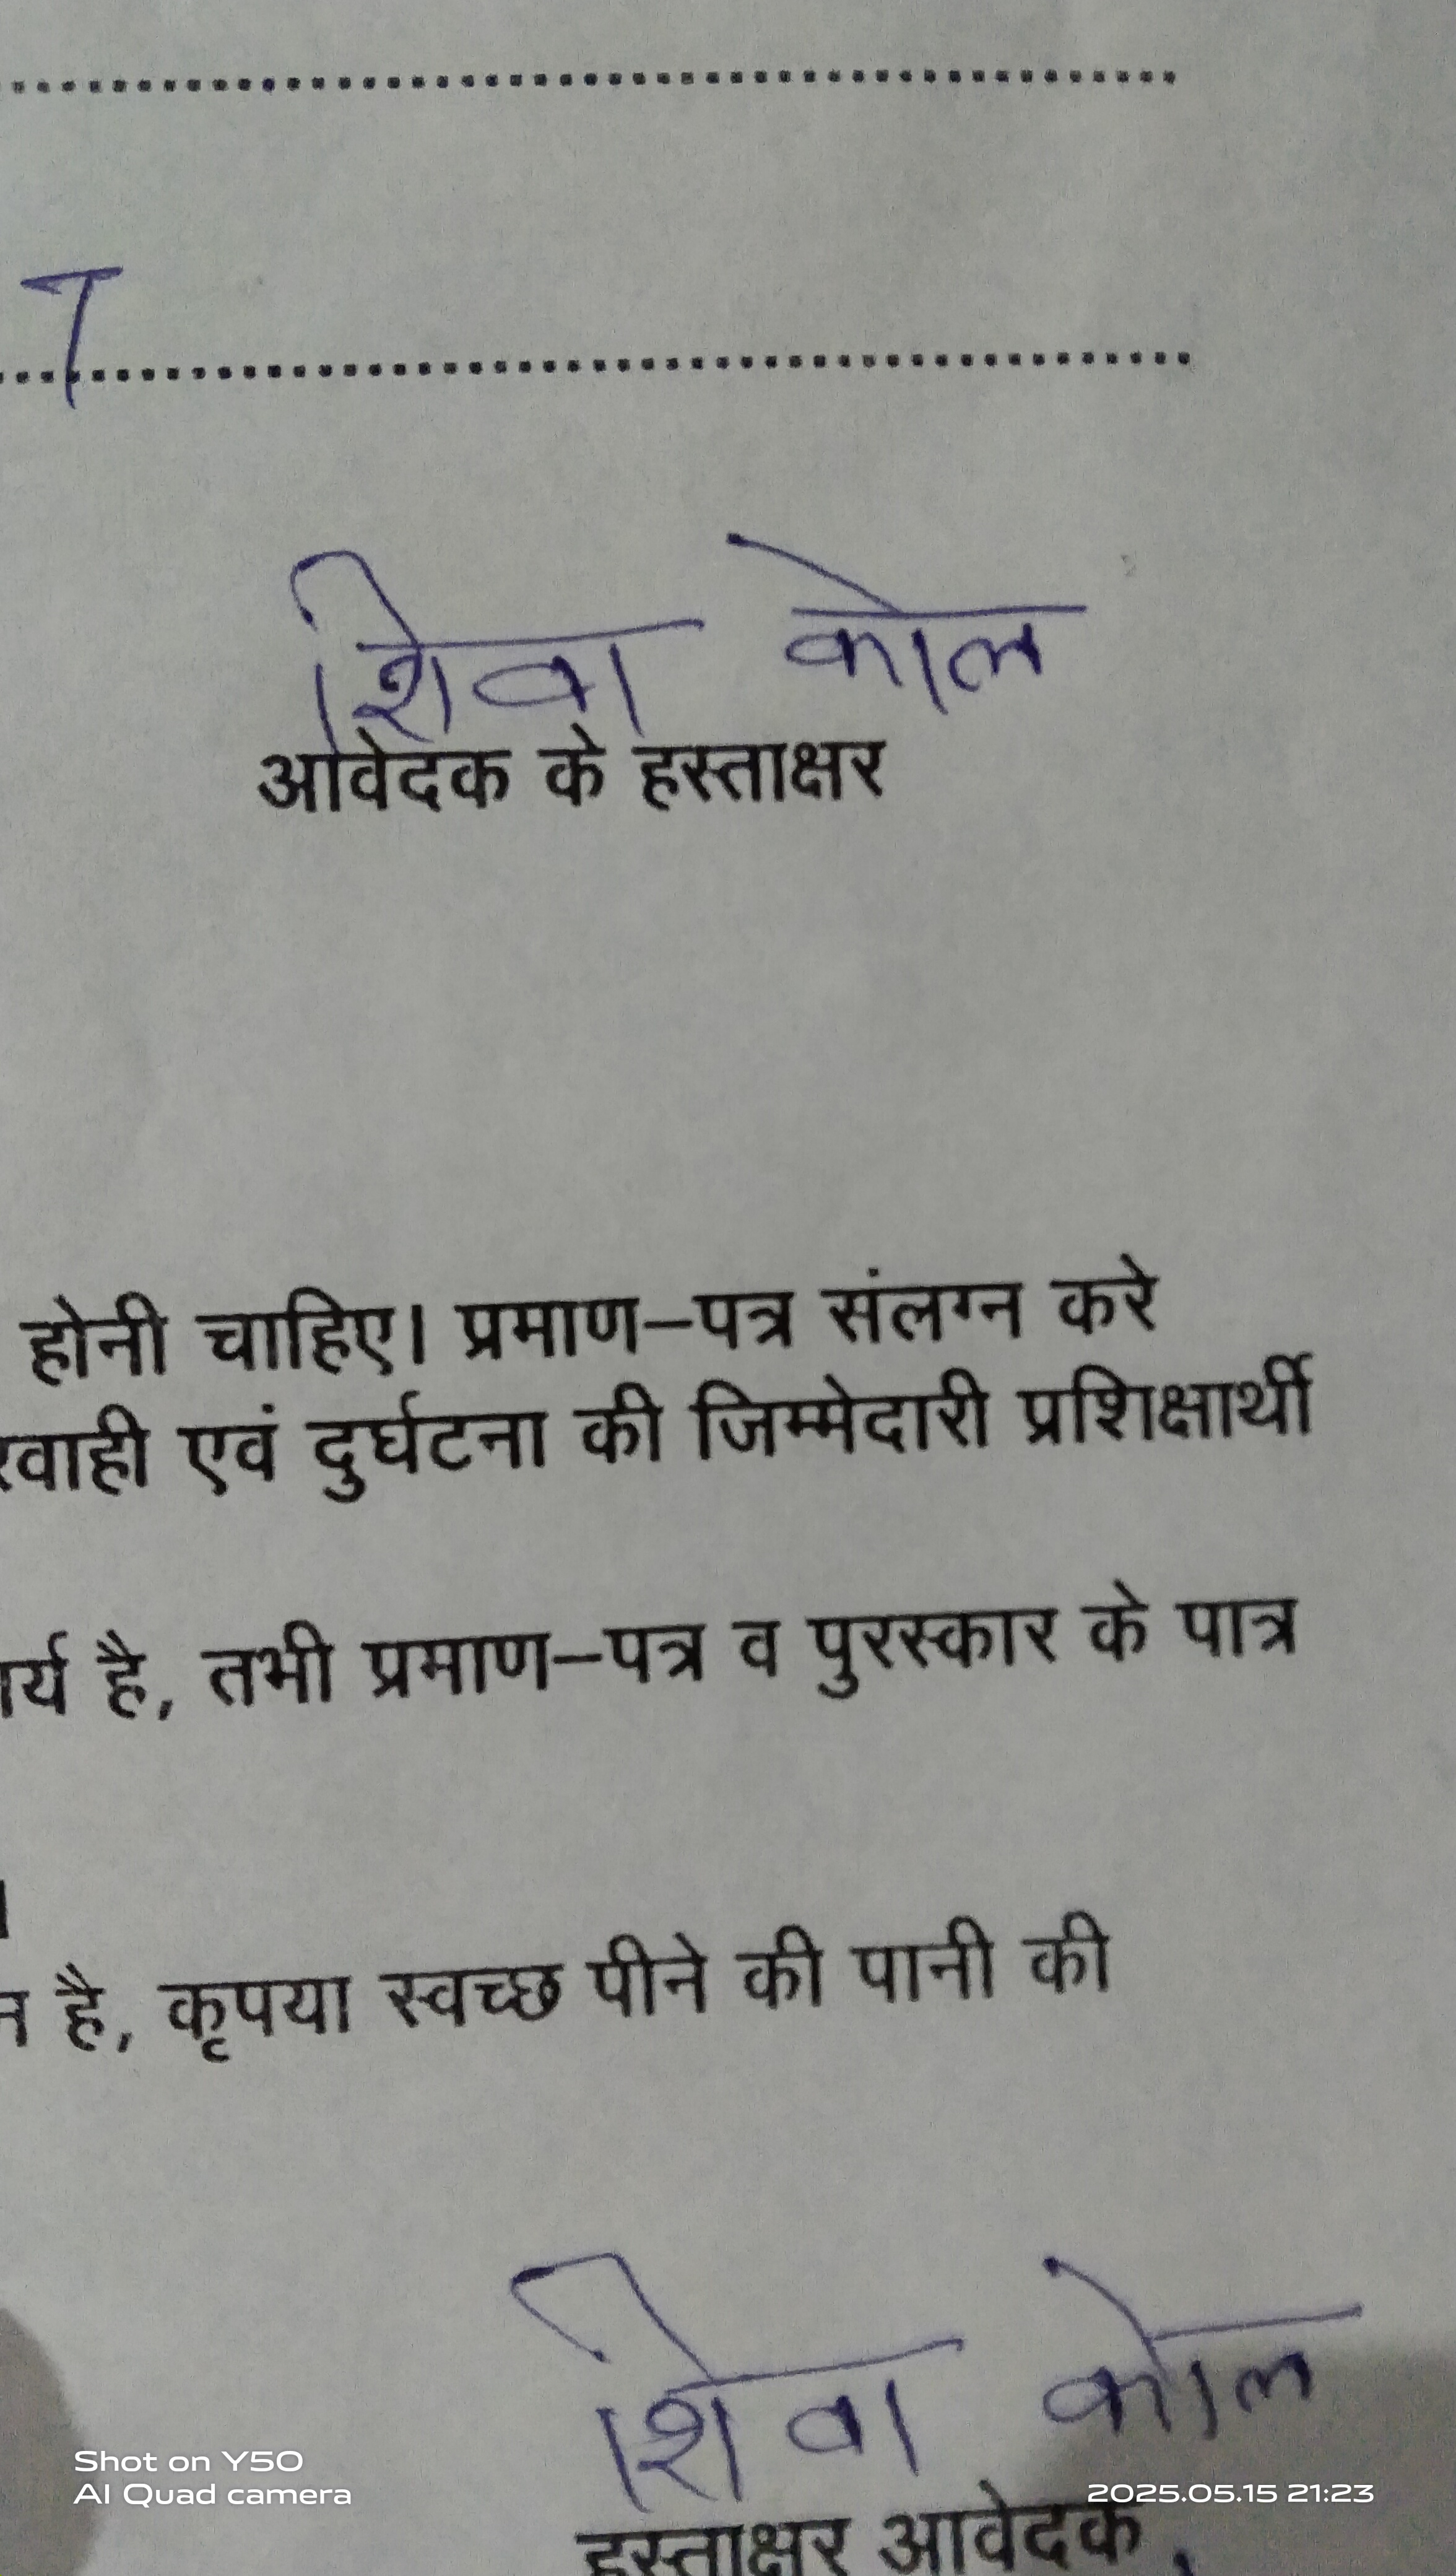 शिवा कोल
आवेदक के हस्ताक्षर
होनी चाहिए। प्रमाण–पत्र संलग्न करे
रवाही एवं दुर्घटना की जिम्मेदारी प्रशिक्षार्थी
र्य है, तभी प्रमाण–पत्र व पुरस्कार के पात्र
है, कृपया स्वच्छ पीने की पानी की
शिवा कोल
हस्ताक्षर आवेदक
Shot on Y50
AI Quad camera
2025.05.15 21:23